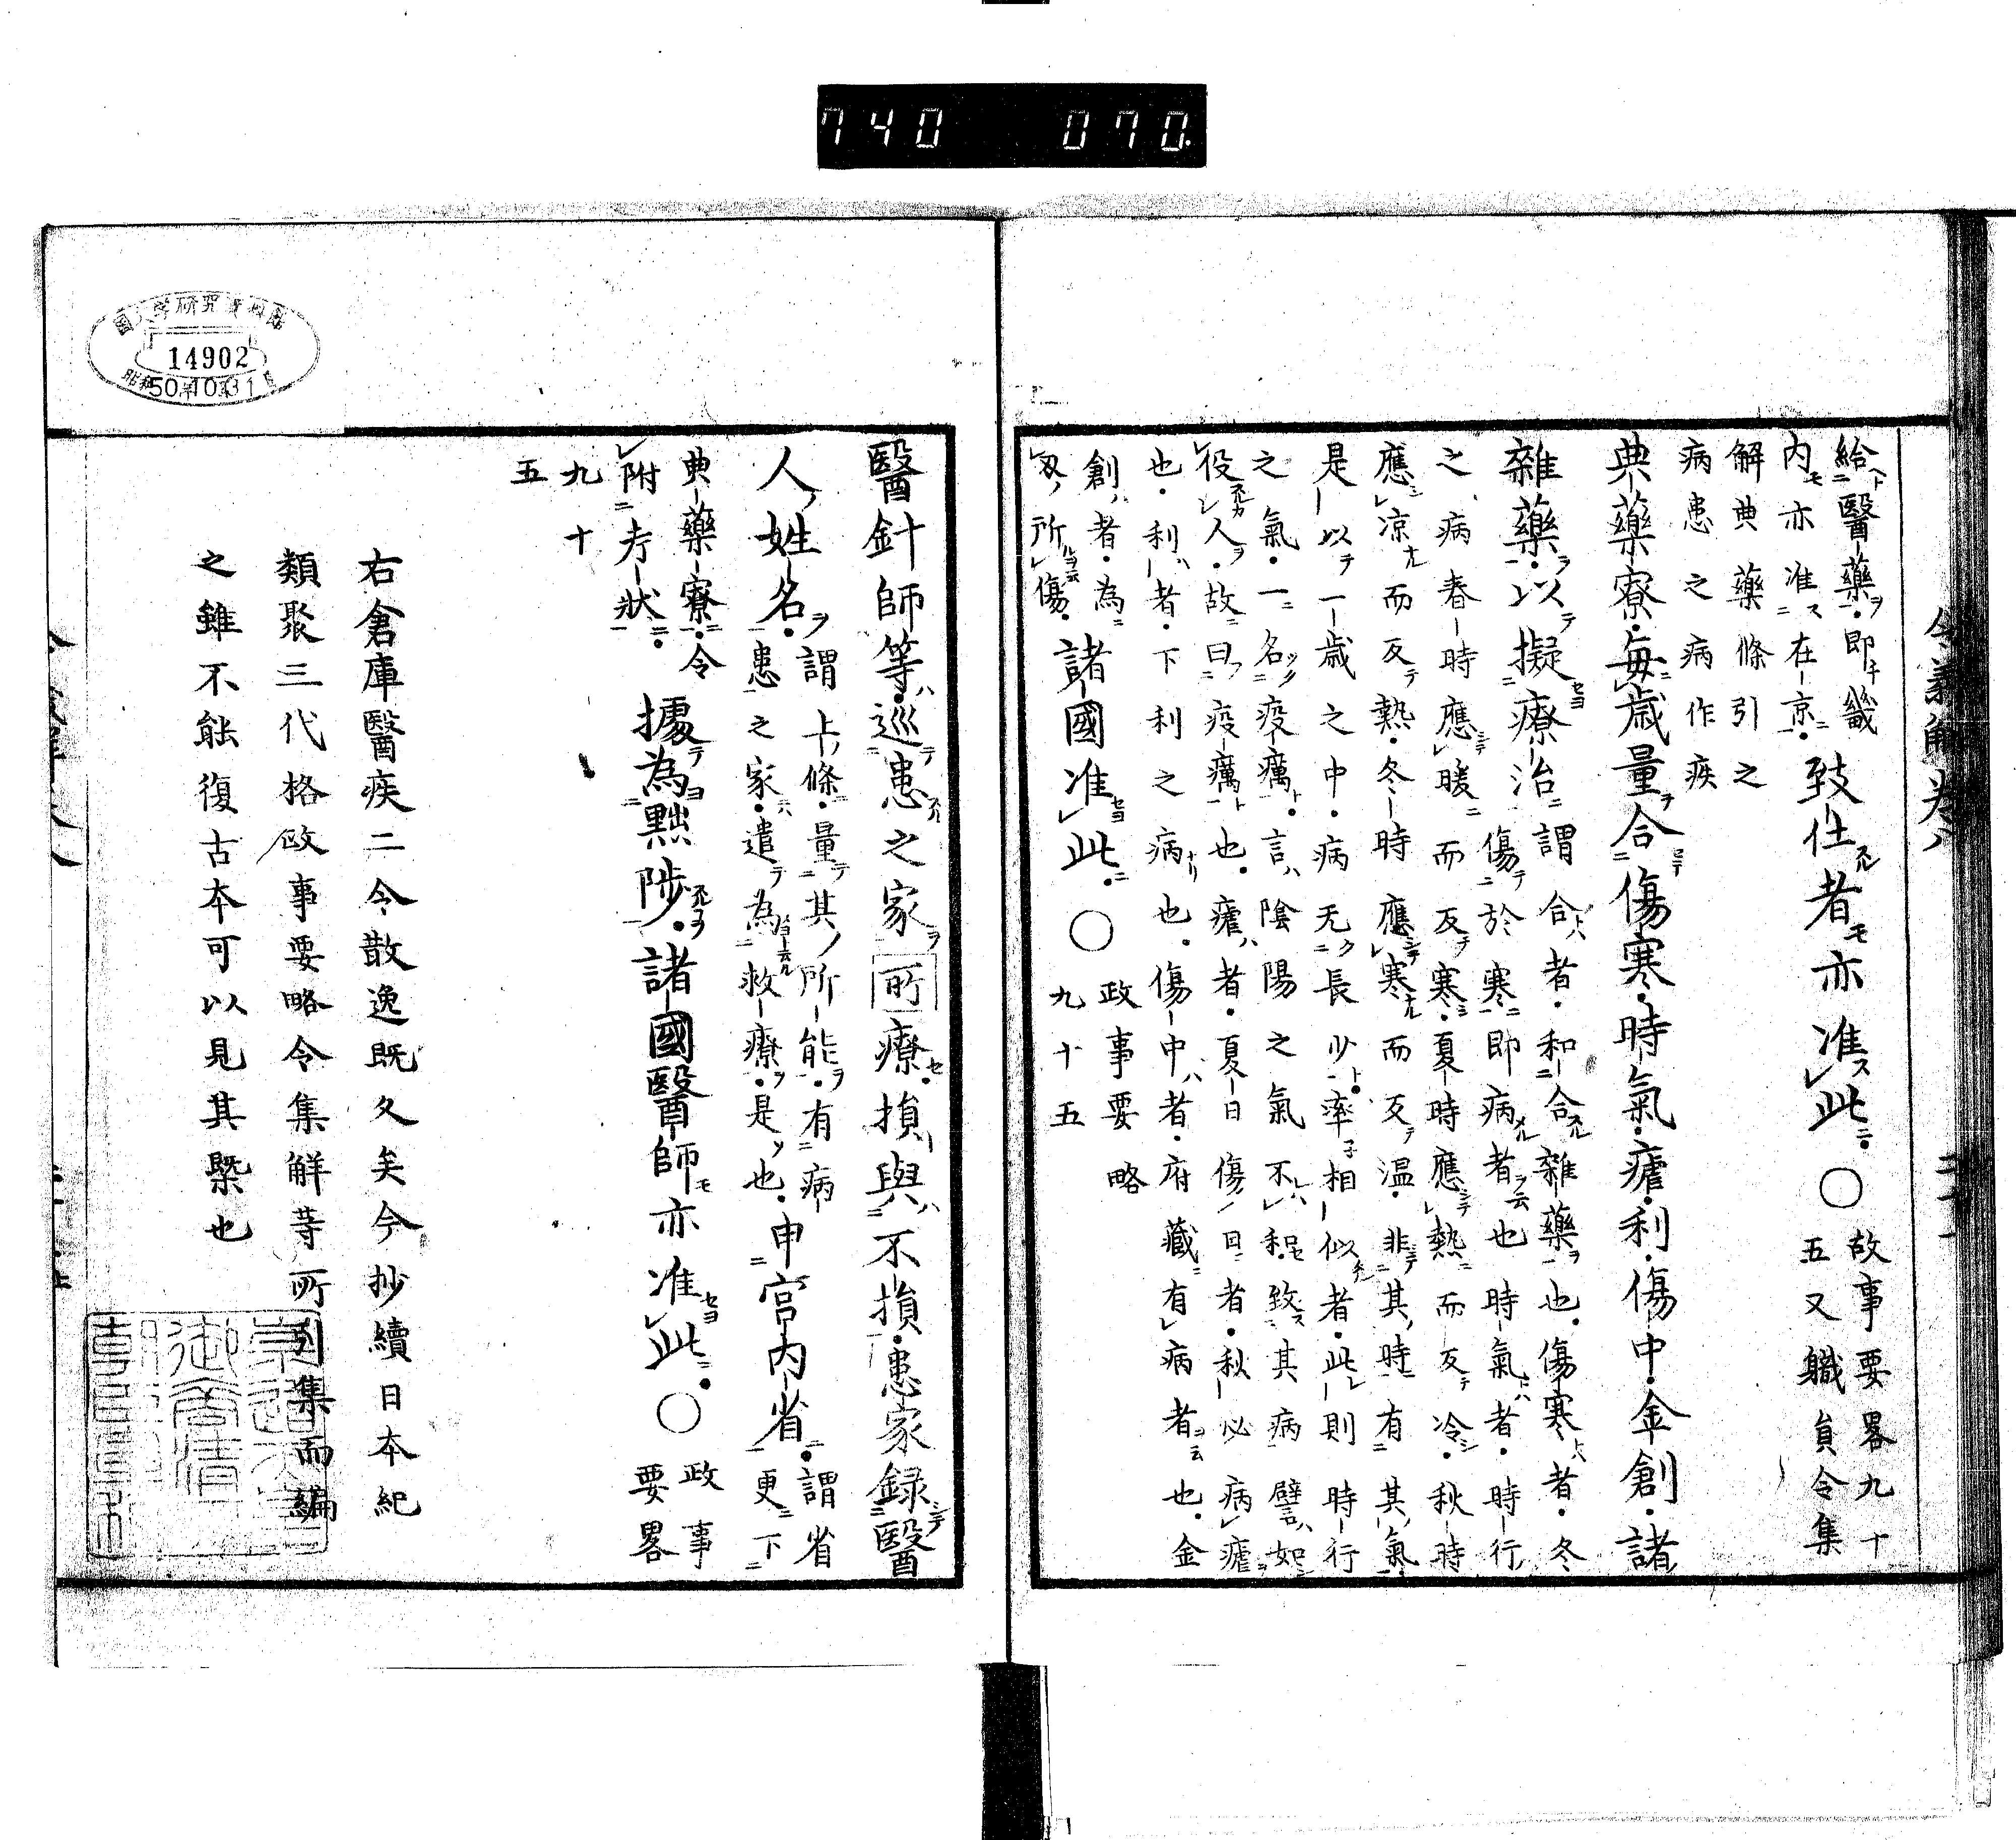 740 070.
給醫藥即畿
内亦准在京
致仕者亦准此○
故事要畧九十
五又職員令集
解典藥條引之
病患之病作疾
典藥寮毎歳量合傷寒時氣瘧利傷中金創諸
雜藥以擬療治
謂合者和合雜藥也傷寒者冬
傷於寒即病者也時氣者時行
之病春時應暖而反寒夏時應熱而反冷秋時
應凉而反熱冬時應寒而反温非其時有其氣
是以一歳之中病无長少率相似者此則時行
之氣一名疫癘言陰陽之氣不和致其病譬如
役人故曰疫癘也瘧者夏日傷日者秋必病瘧
也利者下利之病也傷中者府藏有病者也金
創者為
刄所傷
諸國准此○
政事要略
九十五
令義解卷八
醫針師等巡患之家所療損與不損患家録醫
人姓名
謂上條量其所能有病
患之家遣為救療是也
申宮内省
謂省
更下
典藥寮令
附考狀
據為黜陟諸國醫師亦准此○
政事
要畧
九十
五
右倉庫醫疾二令散逸既久矣今抄續日本紀
類聚三代格政事要略令集解等所引集而編
之雖不能復古本可以見其槩也
國文学研究資料館
14902
昭和50.10.31